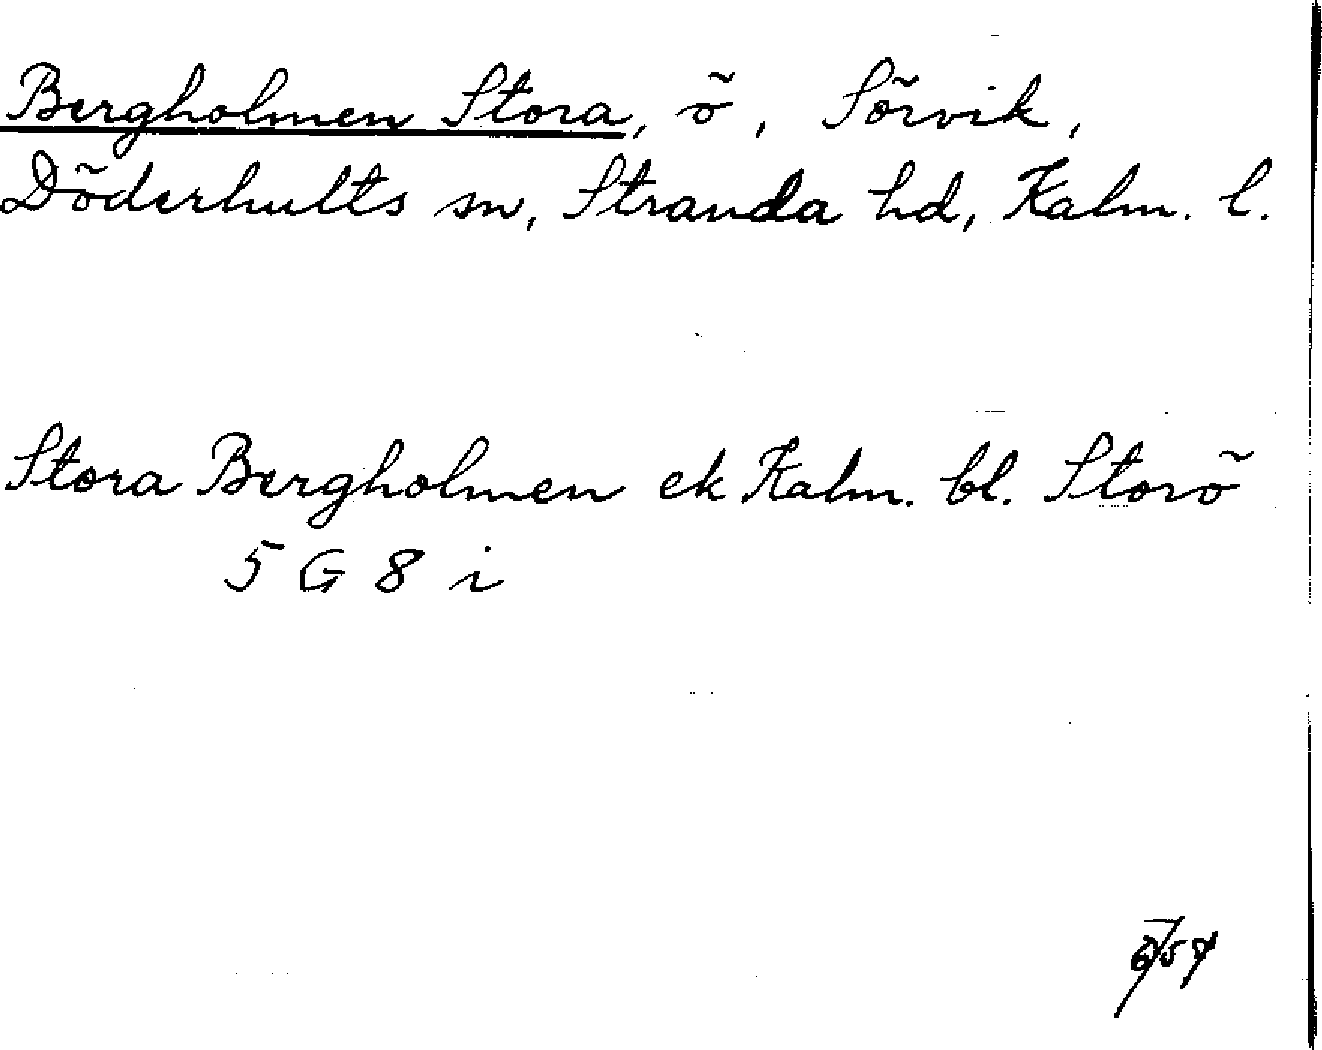 Bergholmen Stora, ö, Sörvik,
Döderhults sn, Stranda hd, Kalm. l.
Stora Bergholmen ek Kalm. bl. Storö
5 G 8 i